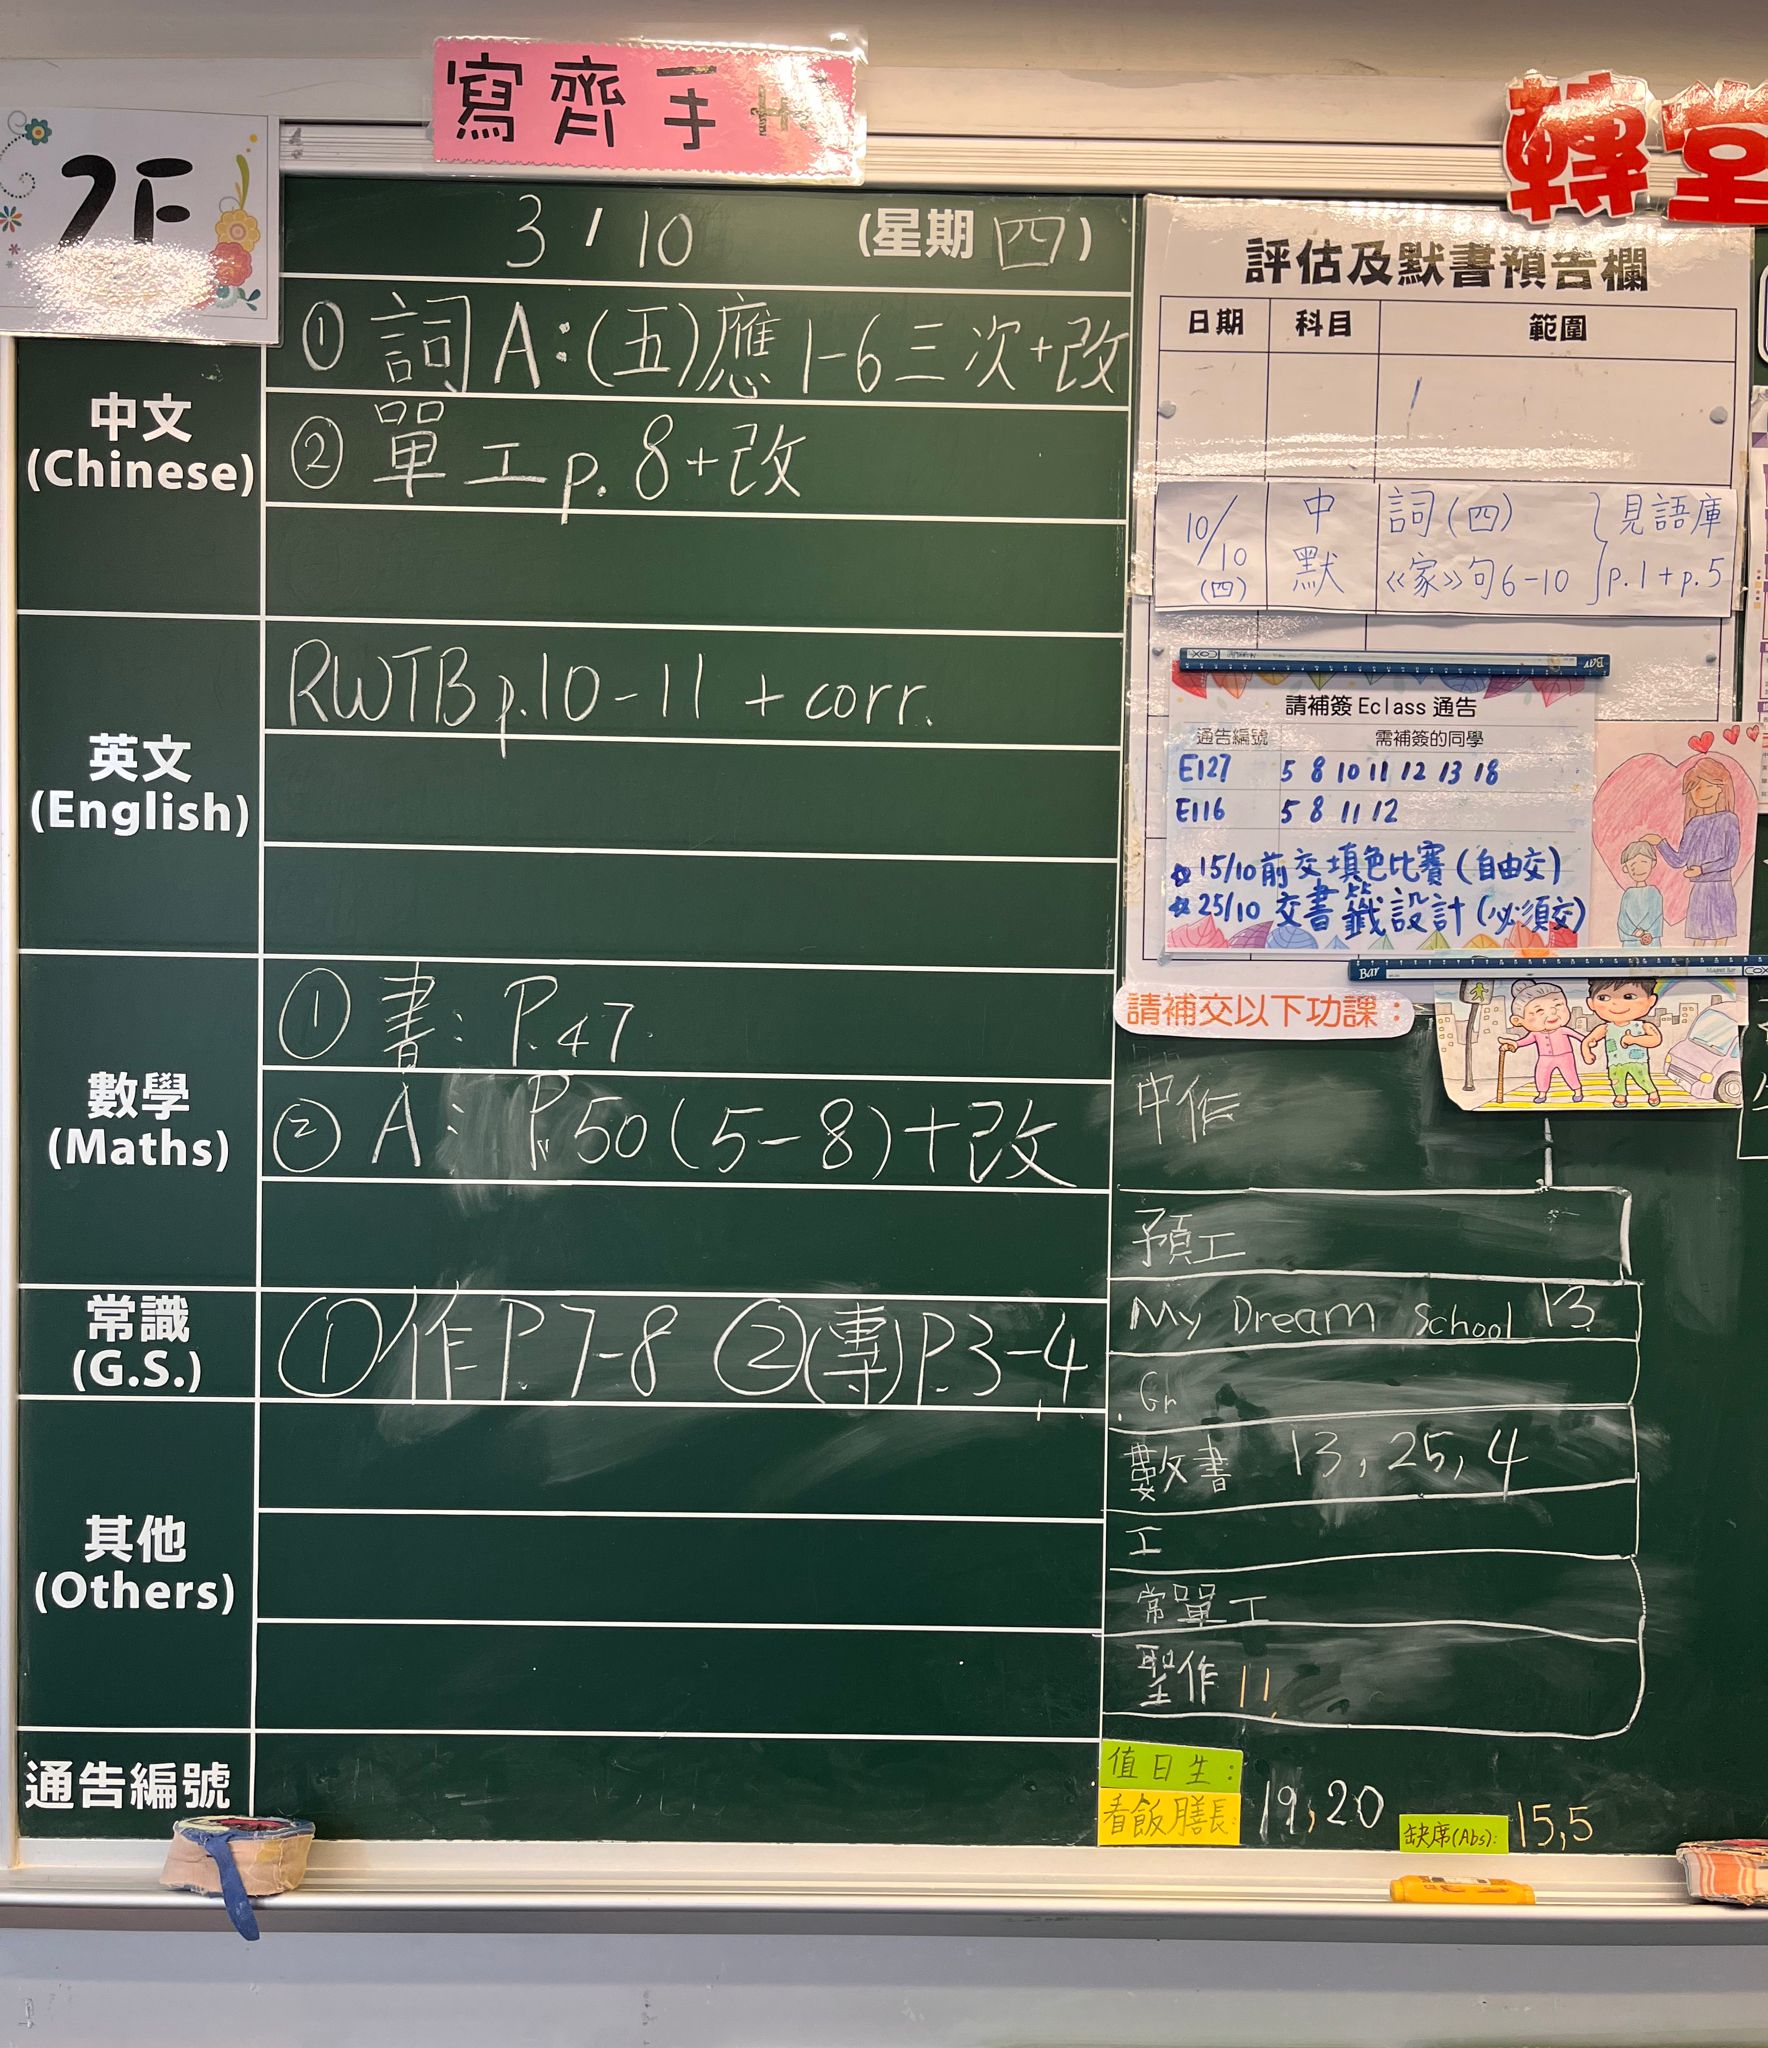 寫齊手
轉堂
2F
3 / 10 (星期 四)
中文
(Chinese)
① 詞A:(五)應1-6三次+改
② 單工p.8+改
英文
(English)
RWTB p.10-11 + corr.
數學
(Maths)
① 書: P.47
② A: P.50(5-8)+改
常識
(G.S.)
①作P.7-8 ②(專)P.3-4
其他
(Others)
通告編號
評估及默書預告欄
日期 科目 範圍
10/10 (四) 中默 詞(四) 《家》句6-10 }見語庫 p.1+p.5
請補簽 Eclass 通告
通告編號 需補簽的同學
E127 5 8 10 11 12 13 18
E116 5 8 11 12
15/10前交填色比賽(自由交)
25/10 交書籤設計(必須交)
請補交以下功課:
中作
預工
My Dream School 13
Gr
數書 13, 25, 4
工
常單工
聖作 11
值日生:
看飯膳長: 19, 20
缺席(Abs): 15,5